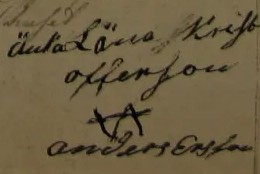 änka Lãna Krist
offerson
anders Ersson